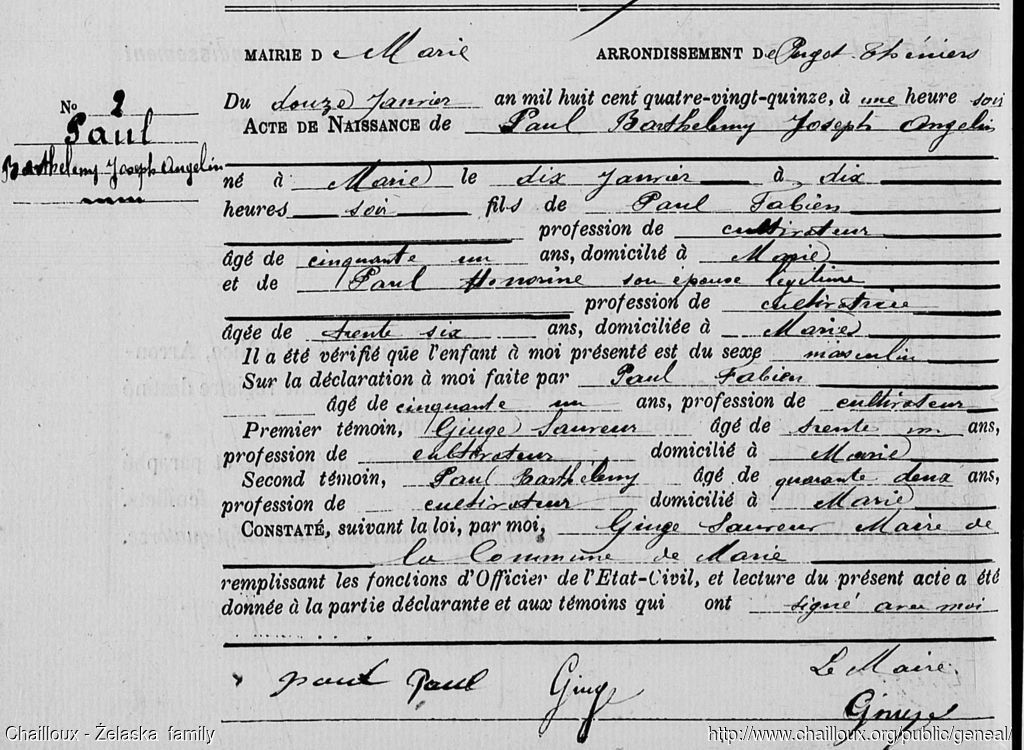 MAIRIE D Marie ARRONDISSEMENT De Puget-Théniers
No 2
Paul
Barthelemy Joseph Angelin
Du douze Janvier an mil huit cent quatre-vingt-quinze, à une heure soir
ACTE DE NAISSANCE de Paul Barthelemy Joseph Angelin
né à Marie le dix Janvier à dix
heures soir fils de Paul Fabien
profession de cultivateur
âgé de cinquante un ans, domicilié à Marie
et de Paul Honorine son épouse légitime
profession de cultivatrice
âgée de trente six ans, domiciliée à Marie
Il a été vérifié que l'enfant à moi présenté est du sexe masculin
Sur la déclaration à moi faite par Paul Fabien
âgé de cinquante un ans, profession de cultivateur
Premier témoin, Giuge Sauveur âgé de trente un ans,
profession de cultivateur domicilié à Marie
Second témoin, Paul Barthelemy âgé de quarante deux ans,
profession de cultivateur domicilié à Marie
CONSTATÉ, suivant la loi, par moi, Giuge Sauveur Maire de
la Commune de Marie
remplissant les fonctions d'Officier de l'Etat-Civil, et lecture du présent acte a été
donnée à la partie déclarante et aux témoins qui ont signé avec moi
Le Maire
paul Paul Giuge
Giuge
Chailloux - Żelaska family http://www.chailloux.org/public/geneal/